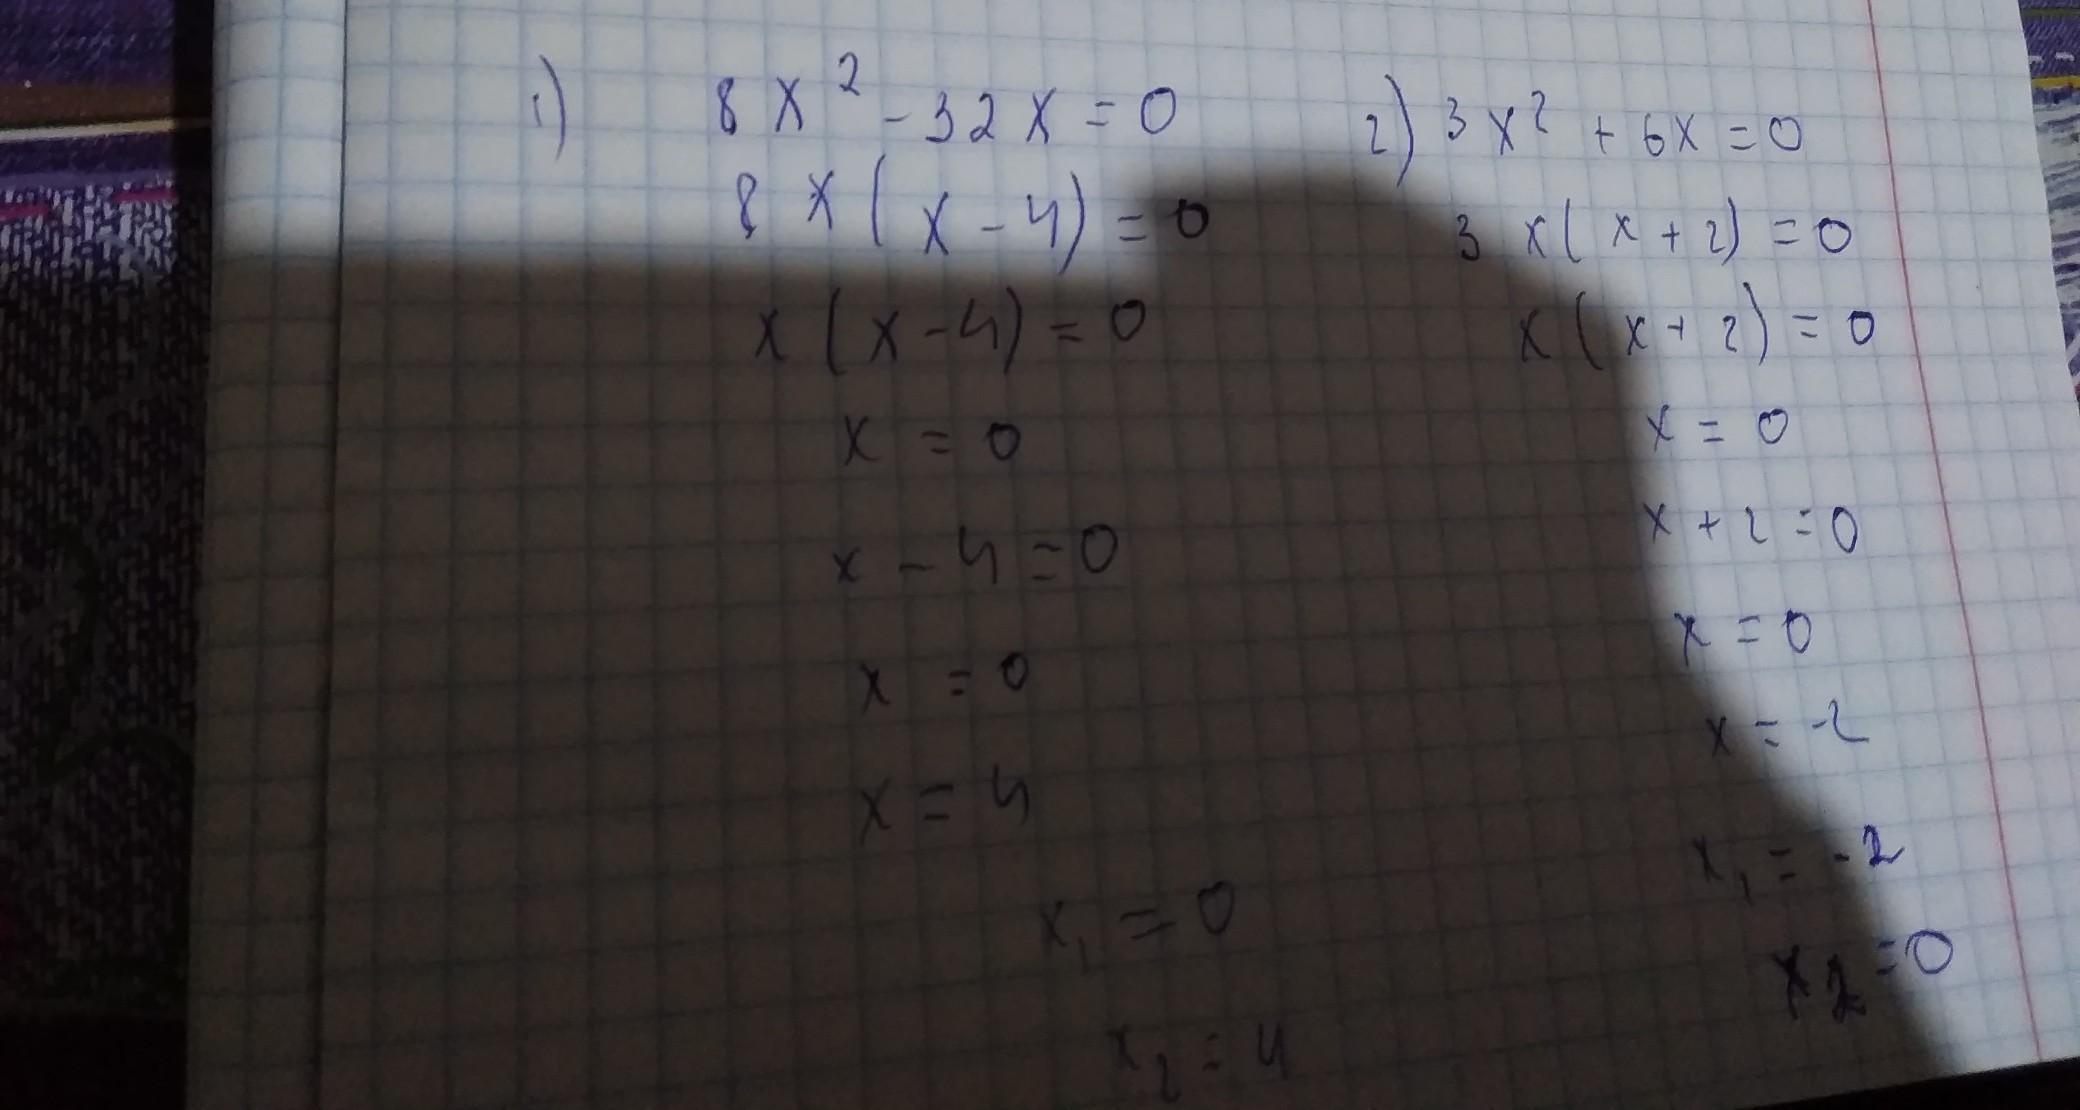 1) 8x² - 32x = 0
8x(x - 4) = 0
x(x - 4) = 0
x = 0
x - 4 = 0
x = 0
x = 4
x₁ = 0
x₂ = 4
2) 3x² + 6x = 0
3x(x + 2) = 0
x(x + 2) = 0
x = 0
x + 2 = 0
x = 0
x = -2
x₁ = -2
x₂ = 0